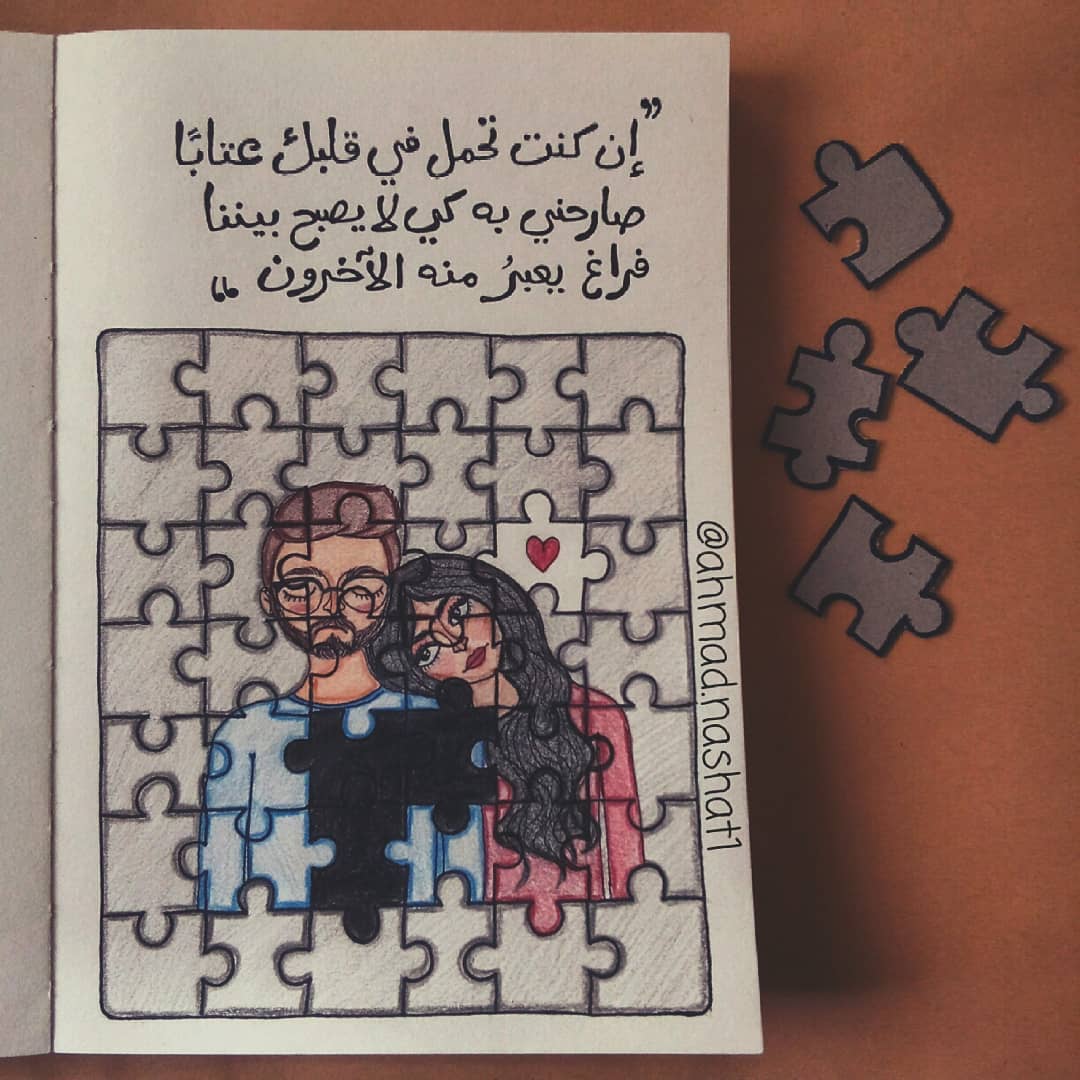 ”إن كنت تحمل في قلبك عتابًا
صارحني به كي لا يصبح بيننا
فراغ يعبرُ منه الآخرون “
@ahmad.nashat1